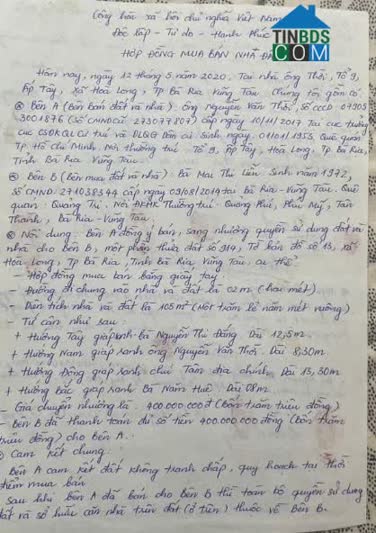 Cộng hòa xã hội chủ nghĩa Việt Nam
Độc lập - Tự do - Hạnh Phúc
TINBDS
COM
HỢP ĐỒNG MUA BÁN NHÀ ĐẤT
Hôm nay, ngày 12 tháng 5 năm 2020. Tại nhà ông Thới, Tổ 9,
Ấp Tây, Xã Hòa Long, Tp Bà Rịa Vũng Tàu. Chúng tôi gồm có:
Bên A (Bên bán đất và nhà): ông Nguyễn Văn Thới. Số CCCD: 07905
3001876 (Số CMND cũ 273077807) cấp ngày 10/11/2017 Tại cục trưởng
cục CSĐKQL cư trú và DLQG Dân cư Sinh ngày, 01/01/1953, Quê quán
Tp. Hồ Chí Minh, Nơi thường trú Tổ 9, Ấp Tây, Hòa Long, Tp Bà Rịa,
Tỉnh Bà Rịa Vũng Tàu.
Bên B (Bên mua đất và nhà): Bà Mai Thị Liễu Sinh năm 1972,
Số CMND: 271038344 cấp ngày 09/08/2014 tại Bà Rịa - Vũng Tàu. Quê
quán: Quảng Trị. Nơi ĐKHK Thường trú: Quảng Phú, Phú Mỹ, Tân
Thành, Bà Rịa - Vũng Tàu.
Nội dung: Bên A đồng ý bán, sang nhượng quyền sử dụng đất và
nhà cho bên B, một phần thửa đất số 914, Tờ bản đồ số 13, xã
Hòa Long, Tp Bà Rịa, Tỉnh Bà Rịa Vũng Tàu, cụ thể:
- Hợp đồng mua bán bằng giấy tay
- Đường đi chung vào nhà và đất là 02m (hai mét).
- Diện tích nhà và đất là 105m² (Một trăm lẻ năm mét vuông)
Tứ cận như sau:
+ Hướng Tây giáp ranh bà Nguyễn Thị Đăng. Dài 12,5m.
+ Hướng Nam giáp ranh ông Nguyễn Văn Thới. Dài 8,30m
+ Hướng Đông giáp ranh chú Tám địa chính. Dài 13,30m
+ Hướng Bắc giáp ranh Bà Năm Huê. Dài 08m.
- Giá chuyển nhượng là: 400.000.000đ (Bốn trăm triệu đồng)
- Bên B đã thanh toán đủ số tiền 400.000.000 đồng (bốn trăm
triệu đồng) cho bên A.
Cam kết chung:
Bên A cam kết đất không tranh chấp, quy hoạch tại thời
điểm mua bán
Sau khi bên A đã bán cho bên B thì toàn bộ quyền sử dụng
đất và sở hữu căn nhà trên đất (ở trên) thuộc về bên B.